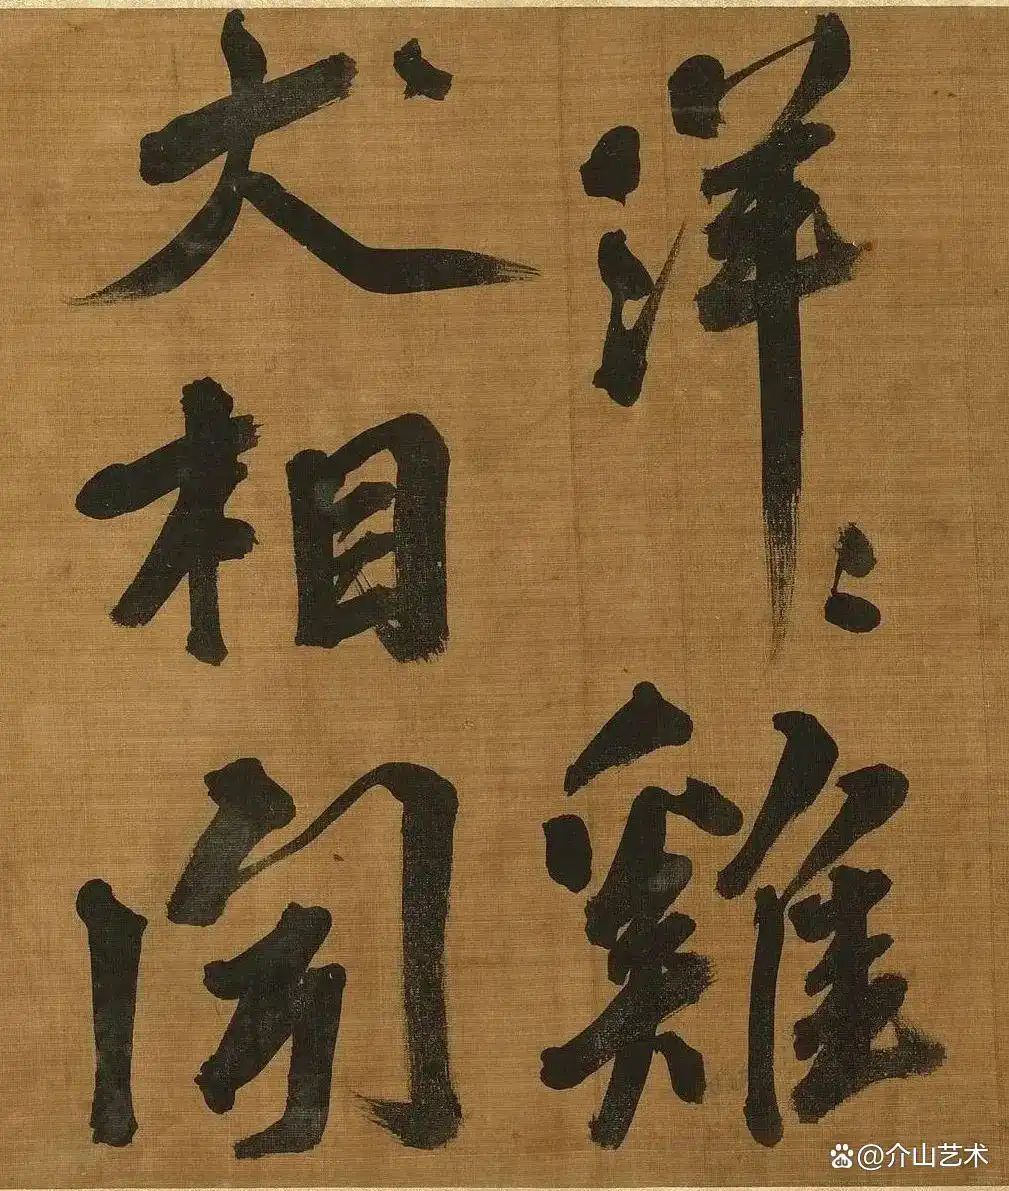 洋〻雞
犬相聞
@介山艺术